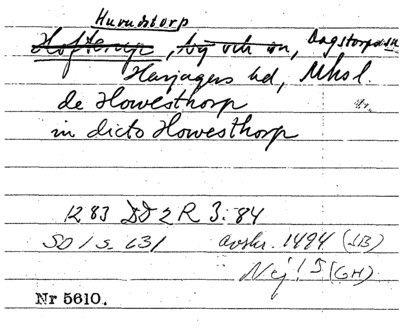 Huruvtorp
Hofterup, by och sn, Dagstorps sn
Harjagers hd, Mhsl.
de Howesthorp
in dicto Howesthorp
1283 DD 2 R 3: 84
SD 1 s. 631 avskr. 1494 (JB)
Nej! (GH)
Nr 5610.